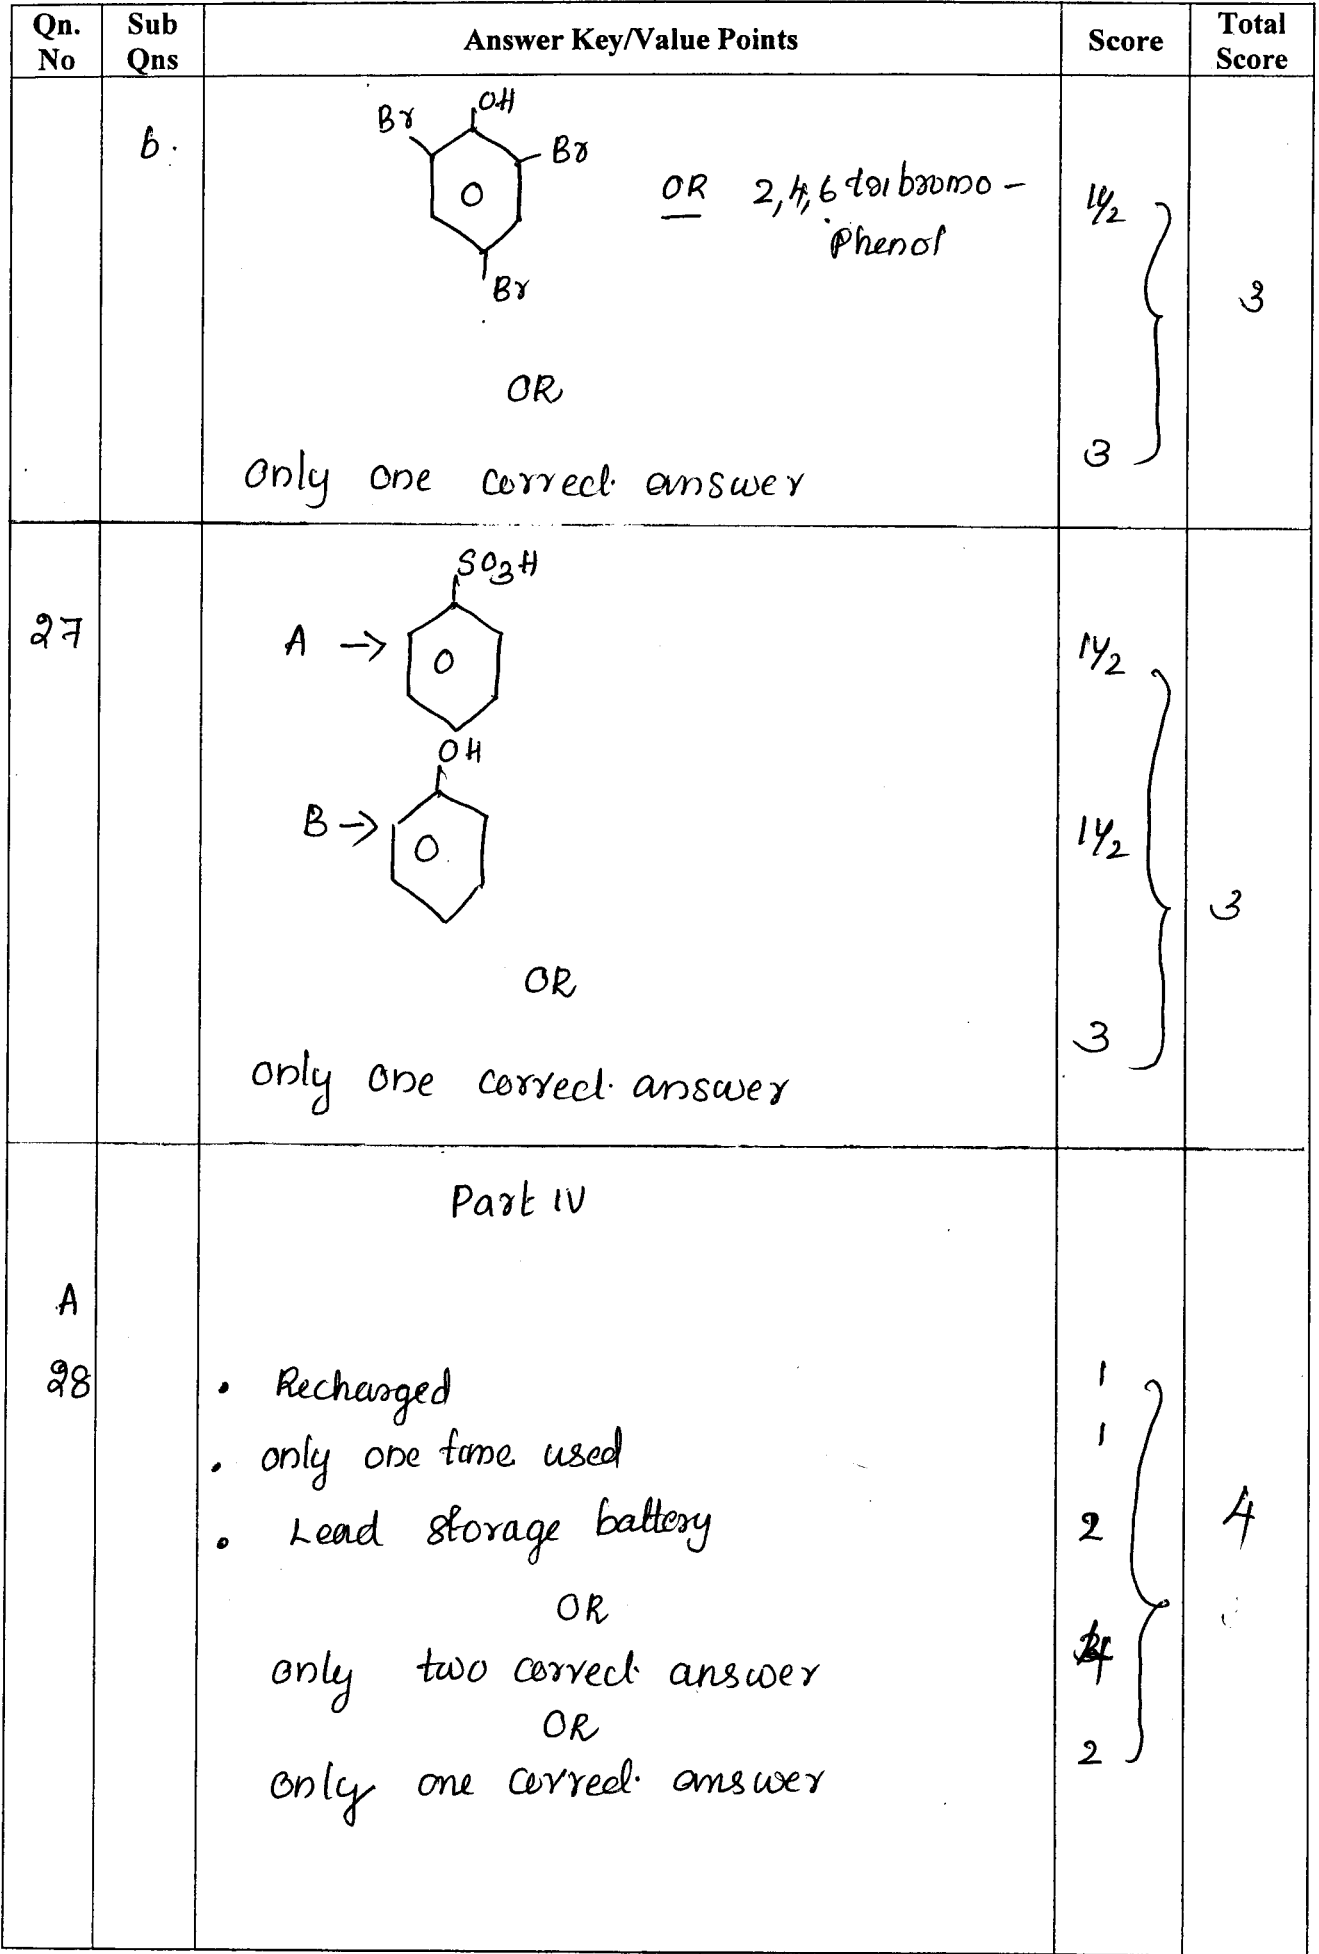 Qn. No Sub Qns Answer Key/Value Points Score Total Score
b.
OH
Br
Br
OR 2,4,6 tribromo - 1½
Phenol
Br
3
OR
only one correct answer 3
SO3H
27 A → 1½
OH
B → 1½
3
OR
only one correct answer 3
Part IV
A
28 • Recharged 1
• only one time used 1
• Lead storage battery 2 4
OR
only two correct answer 4
OR
only one correct answer 2